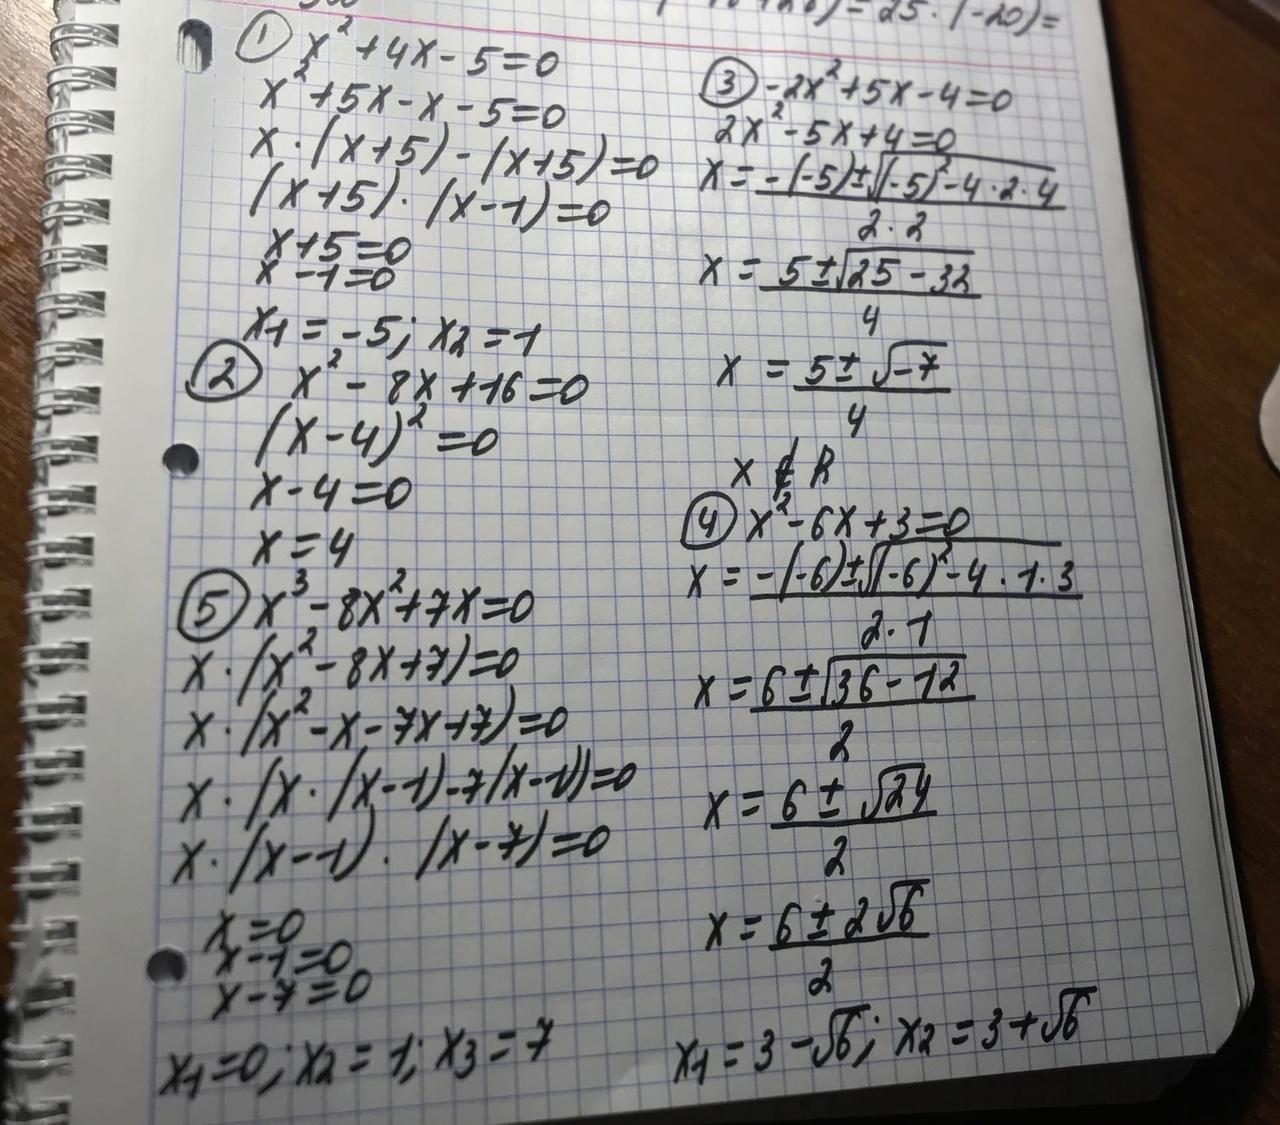 +26) = 25 · (-20) =
① x² + 4x - 5 = 0
x² + 5x - x - 5 = 0
x · (x + 5) - (x + 5) = 0
(x + 5) · (x - 1) = 0
x + 5 = 0
x - 1 = 0
x1 = -5; x2 = 1
② x² - 8x + 16 = 0
(x - 4)² = 0
x - 4 = 0
x = 4
⑤ x³ - 8x² + 7x = 0
x · (x² - 8x + 7) = 0
x · (x² - x - 7x + 7) = 0
x · (x · (x - 1) - 7(x - 1)) = 0
x · (x - 1) · (x - 7) = 0
x = 0
x - 1 = 0
x - 7 = 0
x1 = 0; x2 = 1; x3 = 7
③ -2x² + 5x - 4 = 0
2x² - 5x + 4 = 0
x = -(-5) ± √(-5)² - 4 · 2 · 4
2 · 2
x = 5 ± √25 - 32
4
x = 5 ± √-7
4
x ∉ R
④ x² - 6x + 3 = 0
x = -(-6) ± √(-6)² - 4 · 1 · 3
2 · 1
x = 6 ± √36 - 12
2
x = 6 ± √24
2
x = 6 ± 2√6
2
x1 = 3 - √6; x2 = 3 + √6